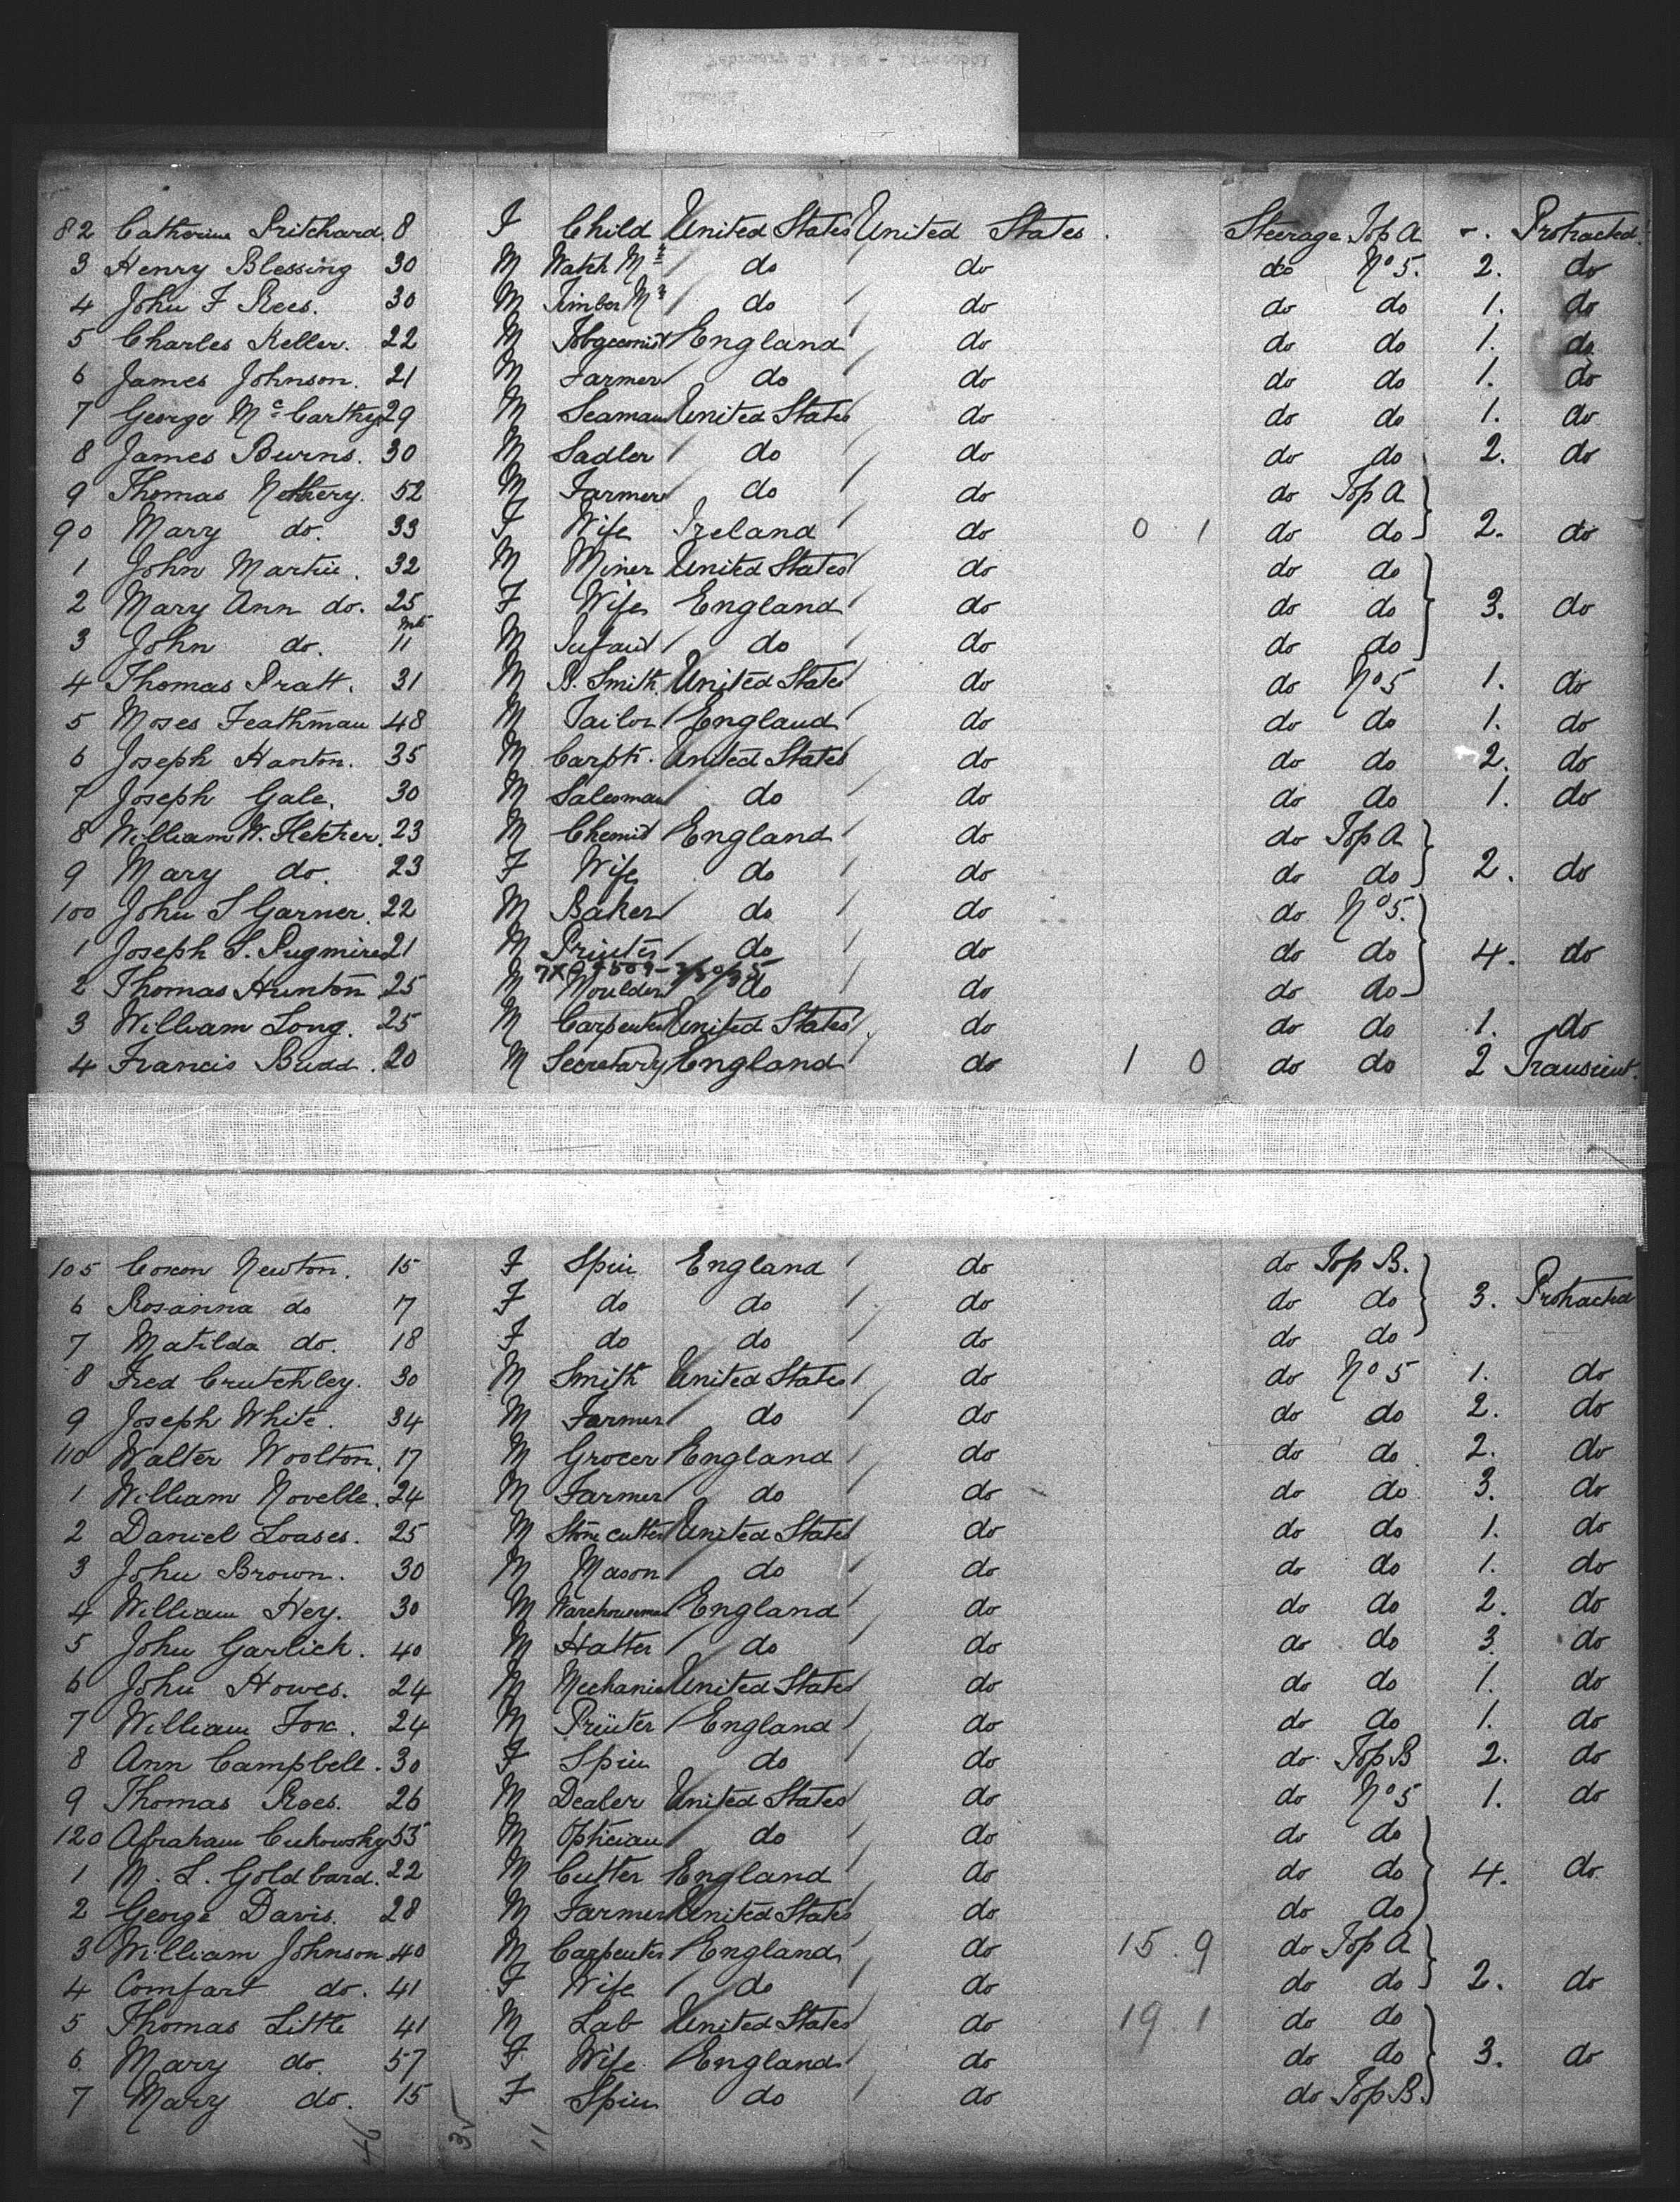 82 Catherine Pritchard. 8 F Child United States United States. Steerage Top A -. Protracted.
3 Henry Blessing 30 M Watch Mr do do do No 5. 2. do
4 John F Rees. 30 M Timber Mr do do do do 1. do
5 Charles Keller. 22 M Tobacconist England do do do 1. do
6 James Johnson. 21 M Farmer do do do do 1. do
7 George McCarthy 29 M Seaman United States do do do 1. do
8 James Burns. 30 M Sadler do do do do 2. do
9 Thomas Nethery. 52 M Farmer do do do Top A
90 Mary do. 33 F Wife Ireland do 0 1 do do 2. do
1 John Martin. 32 M Miner United States do do do
2 Mary Ann do. 25 F Wife England do do do 3. do
3 John do. 11 mts M Infant do do do do
4 Thomas Pratt. 31 M B. Smith United States do do No 5 1. do
5 Moses Feathman 48 M Tailor England do do do 1. do
6 Joseph Hanton. 35 M Carptr. United States do do do 2. do
7 Joseph Gale. 30 M Salesman do do do do 1. do
8 William W. Fletcher. 23 M Chemist England do do Top A
9 Mary do. 23 F Wife do do do do 2. do
100 John S Garner. 22 M Baker do do do No 5.
1 Joseph S. Pugmire 21 M Printer do do do do 4. do
2 Thomas Hunton 25 M Moulder do do do do
3 William Long. 25 M Carpenter United States do do do 1. do
4 Francis Budd. 20 M Secretary England do 1 0 do do 2 Transient.
105 Coxon Newton. 15 F Spin England do do Top B.
6 Rosanna do 17 F do do do do do 3. Protracted
7 Matilda do. 18 F do do do do do
8 Fred Crutchley. 30 M Smith United States do do No 5 1. do
9 Joseph White. 34 M Farmer do do do do 2. do
110 Walter Woolton. 17 M Grocer England do do do 2. do
1 William Novelle. 24 M Farmer do do do do 3. do
2 Daniel Loases. 25 M Stone cutter United States do do do 1. do
3 John Brown. 30 M Mason do do do do 1. do
4 William Hey. 30 M Warehouseman England do do do 2. do
5 John Garlick. 40 M Hatter do do do do 3. do
6 John Howes. 24 M Mechanic United States do do do 1. do
7 William Fox. 24 M Printer England do do do 1. do
8 Ann Campbell. 30 F Spin do do do Top B 2. do
9 Thomas Roes. 26 M Dealer United States do do No 5 1. do
120 Abraham Cukowsky 53 M Optician do do do do
1 M. L. Goldbard. 22 M Cutter England do do do 4. do.
2 George Davis. 28 M Farmer United States do do do
3 William Johnson. 40 M Carpenter England do 15. 9 do Top A
4 Comfart do. 41 F Wife do do do do 2. do
5 Thomas Little 41 M Lab United States do 19 1 do do
6. Mary do. 57 F Wife England do do do 3. do
7 Mary do. 15 F Spin do do do Top B.
46 35 11